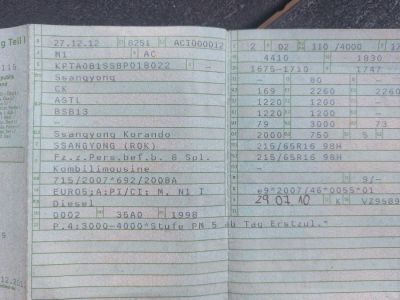 ng Teil I
27.12.12 8251 ACI000012
M1 AC
KPTA0B1SSBP018022 -
Ssangyong
CK
ASTL
BSB13
Ssangyong Korando
SSANGYONG (ROK)
Fz.z.Pers.bef.b. 8 Spl.
Kombilimousine
715/2007*692/2008A
EURO5;A;PI/CI; M, N1 I
Diesel
0002 36A0 1998
P.4:3000-4000*Stufe PM 5 ab Tag Erstzul.*
2 02 110 /4000
4410 1830
1675-1710 1747
- 80
169 2260 2260
1220 1200 -
1220 1200 -
79 3000 73
2000 750 5
215/65R16 98H
215/65R16 98H
-
9/-
e9*2007/46*0055*01
29.07.10 K